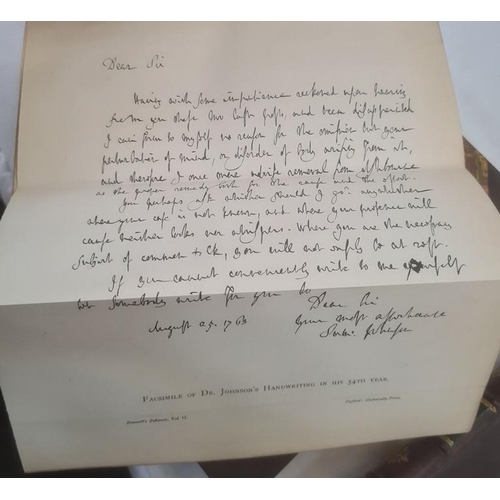 Dear Sir
Having with some impatience reckoned upon hearing
from you these two last posts, and been disappointed
I can form to myself no reason for the omission but your
perturbation of mind, or disorder of body arising from it,
and therefore I once more advise removal from Ashbourne
as the proper remedy both for the cause and the effect.
You perhaps ask whither should I go? any whither
where your case is not known, and where your presence will
cause neither looks nor whispers. Where you are the necessary
subject of common talk, you will not easily be at rest.
If you cannot conveniently write to me yourself
let somebody write for you to
Dear Sir
August 25. 1763
your most affectionate
Sam: Johnson
Facsimile of Dr. Johnson's Handwriting in his 54th year.
Boswell's Johnson, Vol.
Oxford: University Press.